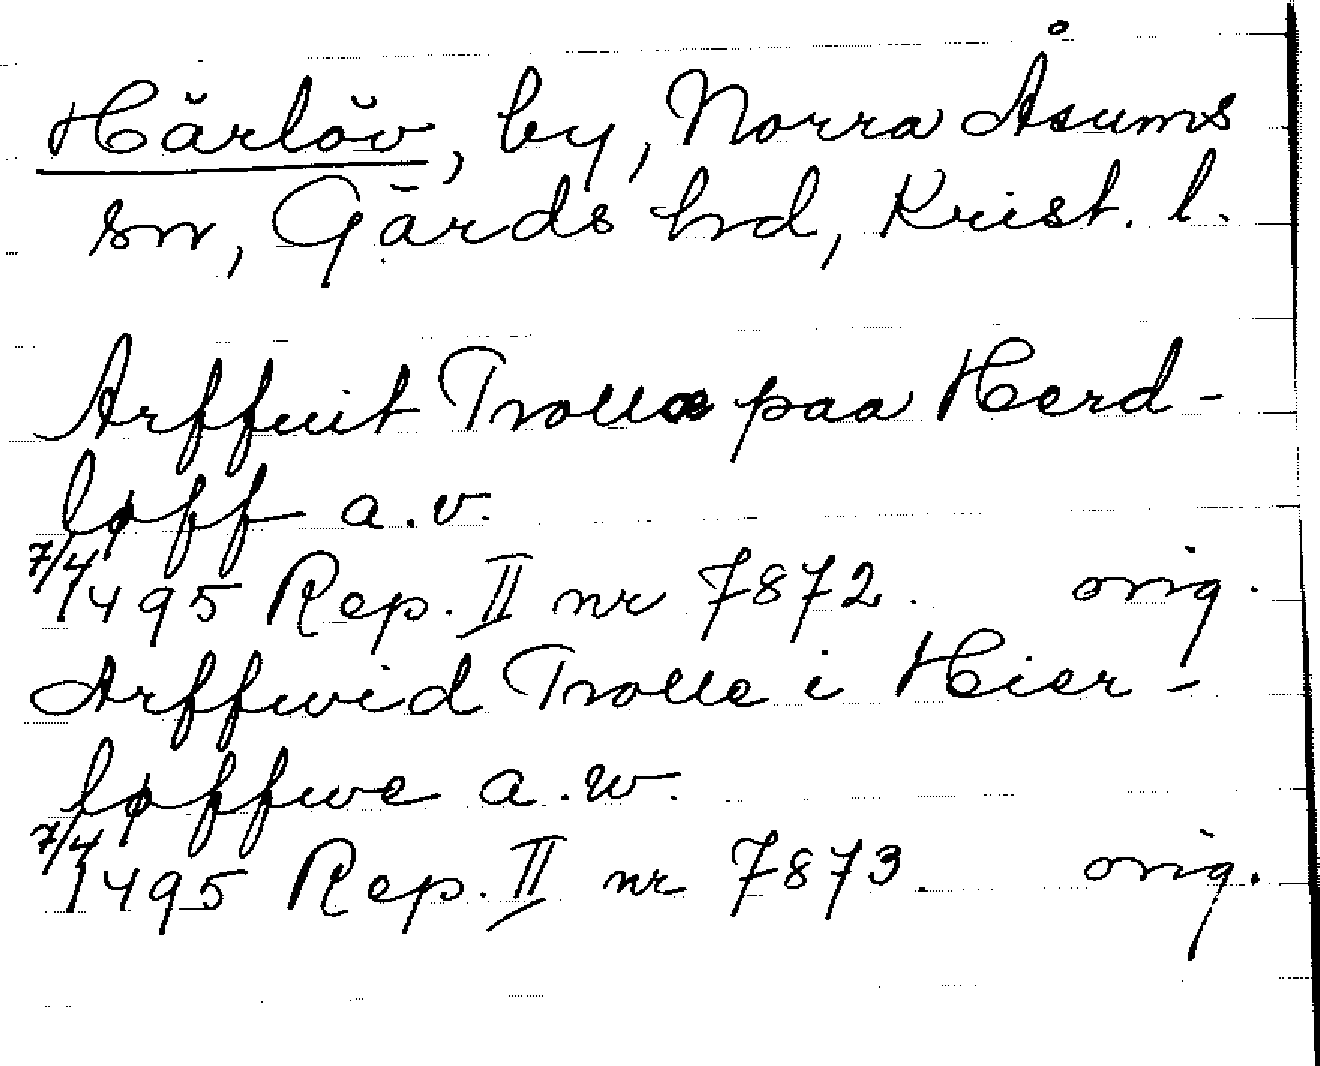 Härlöv, by, Norra Åsums
sn, Gärds hd, Krist. l.
Arffuit Trollæ paa Herd-
løff a.v.
7/4 1495 Rep. II nr 7872. orig.
Arffwid Trolle i Hier-
løffwe a.w.
7/4 1495 Rep. II nr 7873. orig.